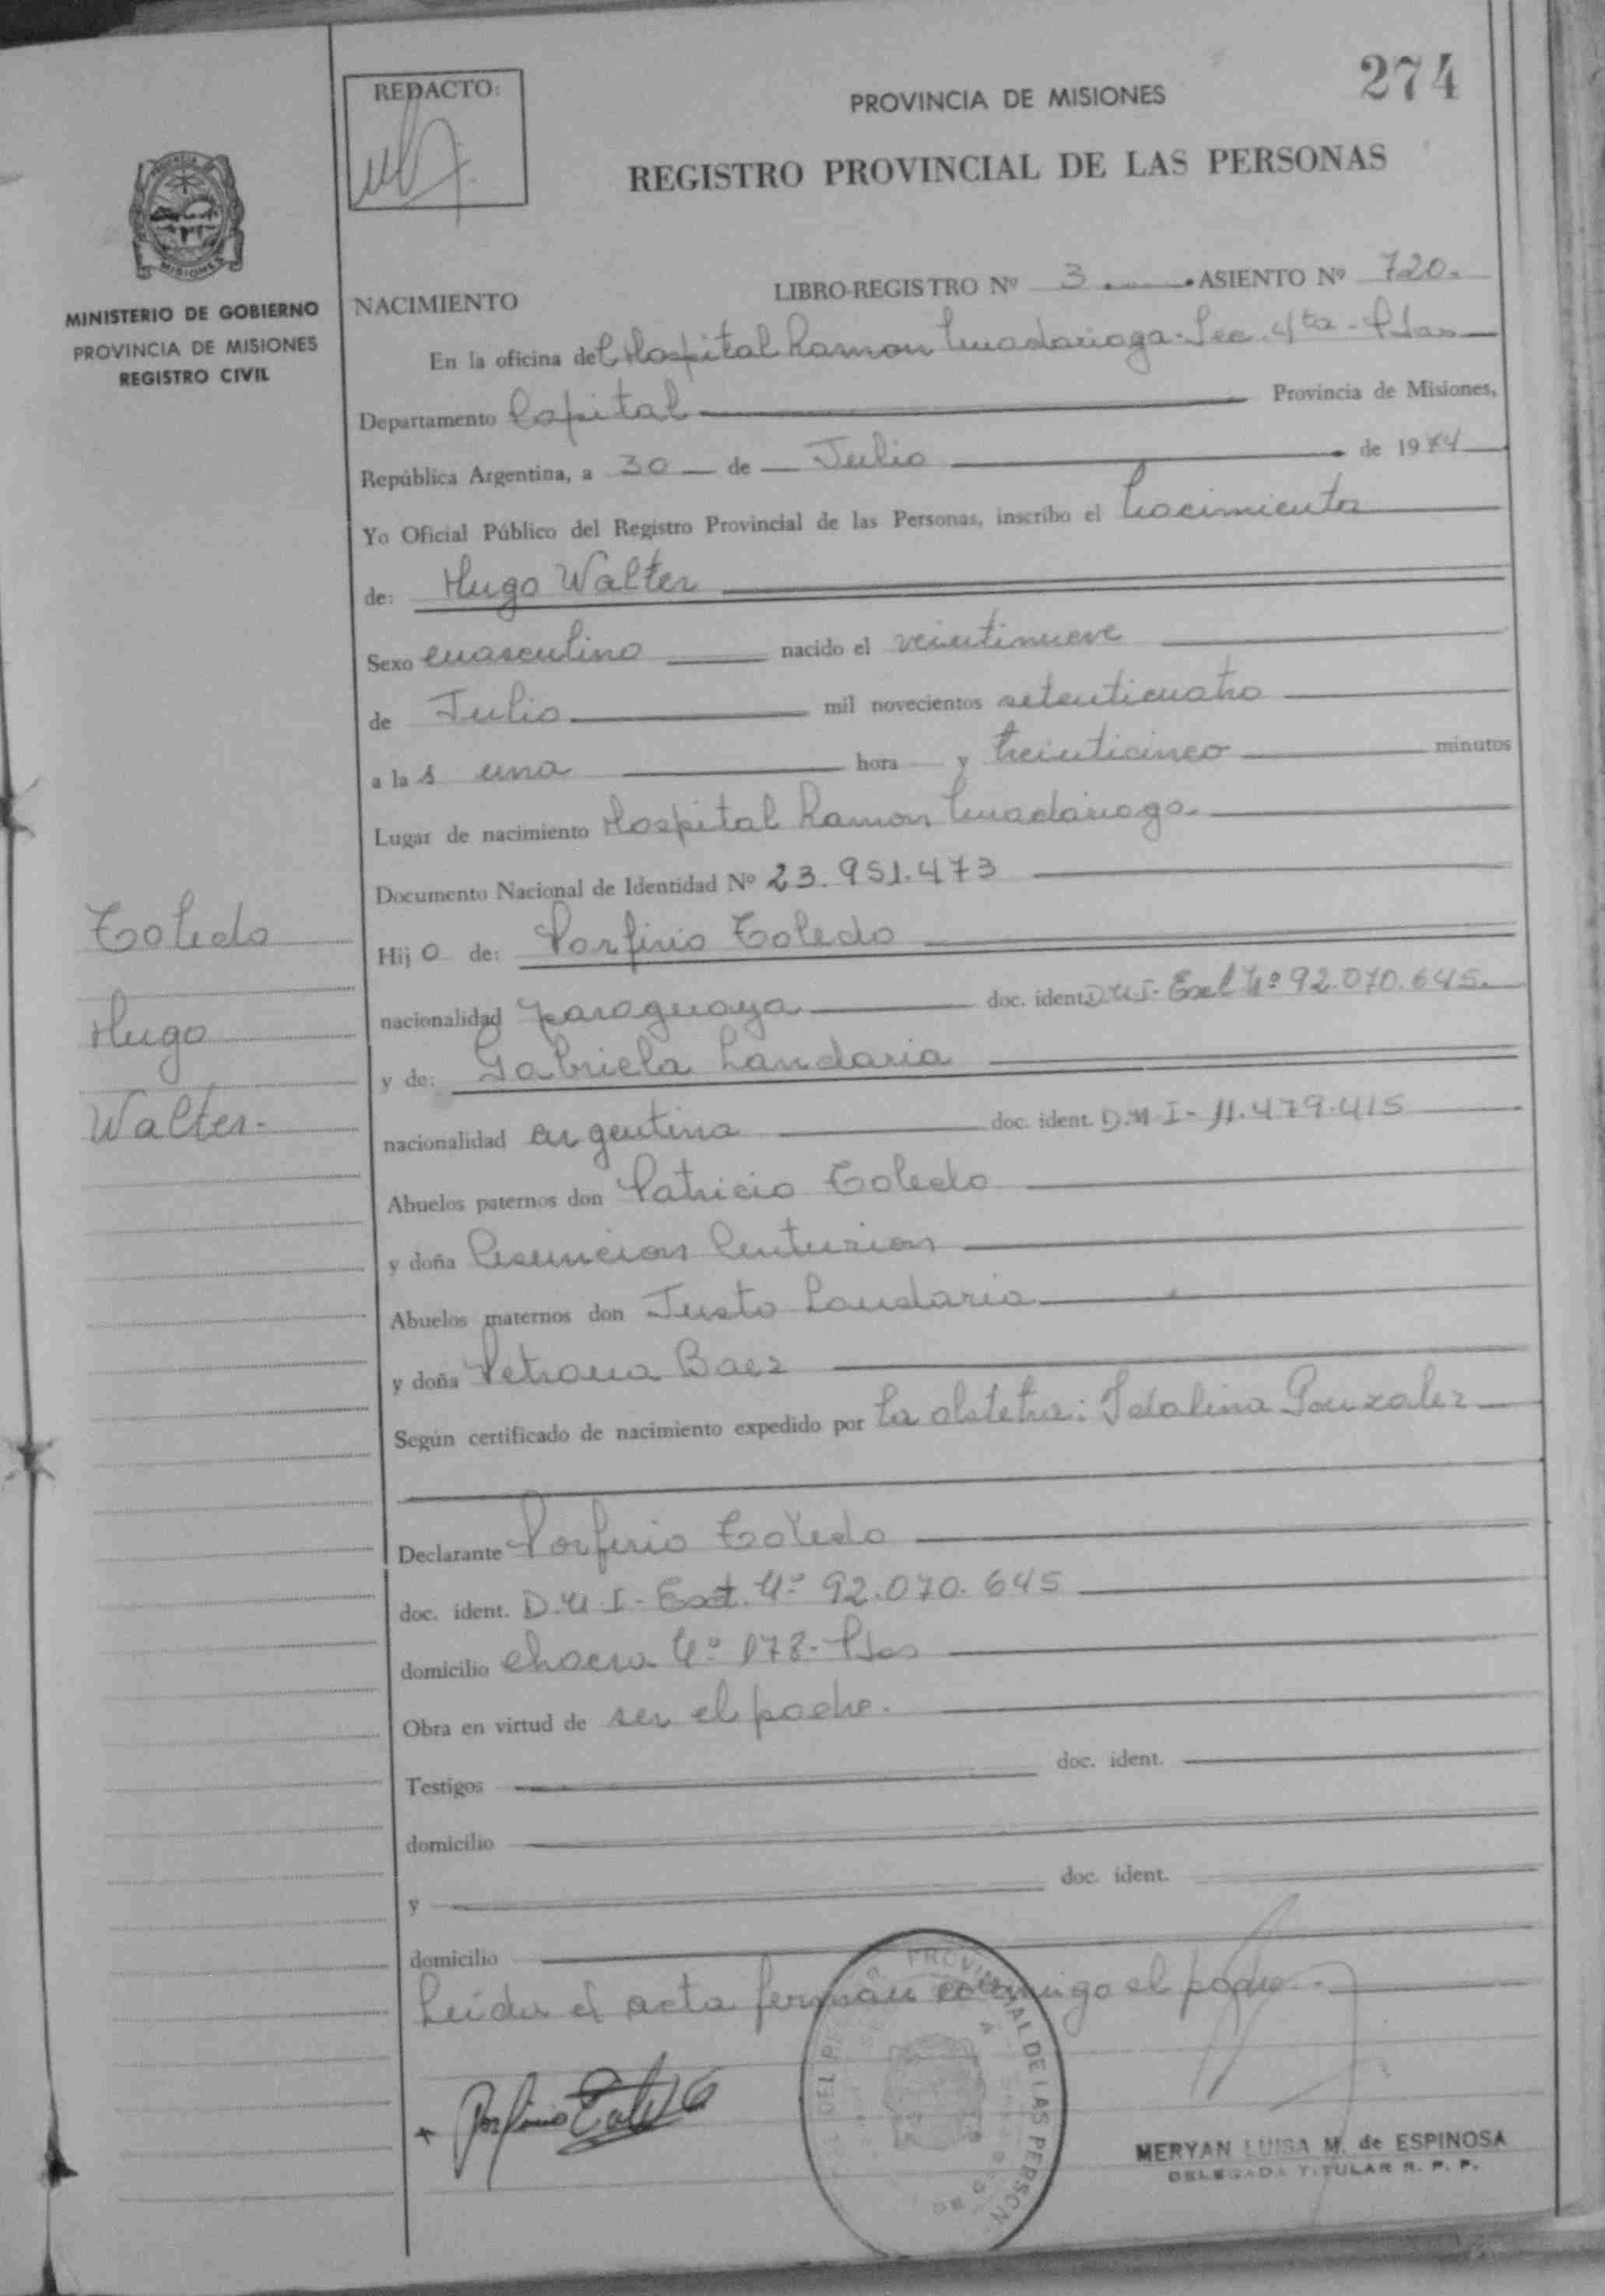 274
REDACTO:
PROVINCIA DE MISIONES
REGISTRO PROVINCIAL DE LAS PERSONAS
MISIONES
MINISTERIO DE GOBIERNO
PROVINCIA DE MISIONES
REGISTRO CIVIL
NACIMIENTO LIBRO-REGISTRO Nº 3 ASIENTO Nº 720.
En la oficina del Hospital Ramon Madariaga - Sec. 4ta - Pdas
Departamento Capital Provincia de Misiones,
República Argentina, a 30 de Julio de 1974
Yo Oficial Público del Registro Provincial de las Personas, inscribo el nacimiento
de: Hugo Walter
Sexo masculino nacido el veintinueve
de Julio mil novecientos setenticuatro
a las una hora y treinticinco minutos
Lugar de nacimiento Hospital Ramon Madariaga
Documento Nacional de Identidad Nº 23.951.473
Toledo
Hugo
Walter.
Hijo de: Porfirio Toledo
nacionalidad paraguaya doc. ident. D.N.I- Ext Nº 92.070.645.
y de: Gabriela Landaria
nacionalidad argentina doc. ident. D.N.I- 11.479.415
Abuelos paternos don Patricio Toledo
y doña Asuncion Centurion
Abuelos maternos don Justo Landaria
y doña Petrona Baez
Según certificado de nacimiento expedido por la obstetra: Idalina Gonzalez
Declarante Porfirio Toledo
doc. ident. D.N.I- Ext. Nº 92.070.645
domicilio chacra Nº 178- Pdas
Obra en virtud de ser el padre.
Testigos doc. ident.
domicilio
y doc. ident.
domicilio
Leida el acta firman conmigo el padre.
Porfirio Toledo
PROVINCIAL DE LAS PERSON
MERYAN LUISA M. de ESPINOSA
DELEGADA TITULAR R. P. P.